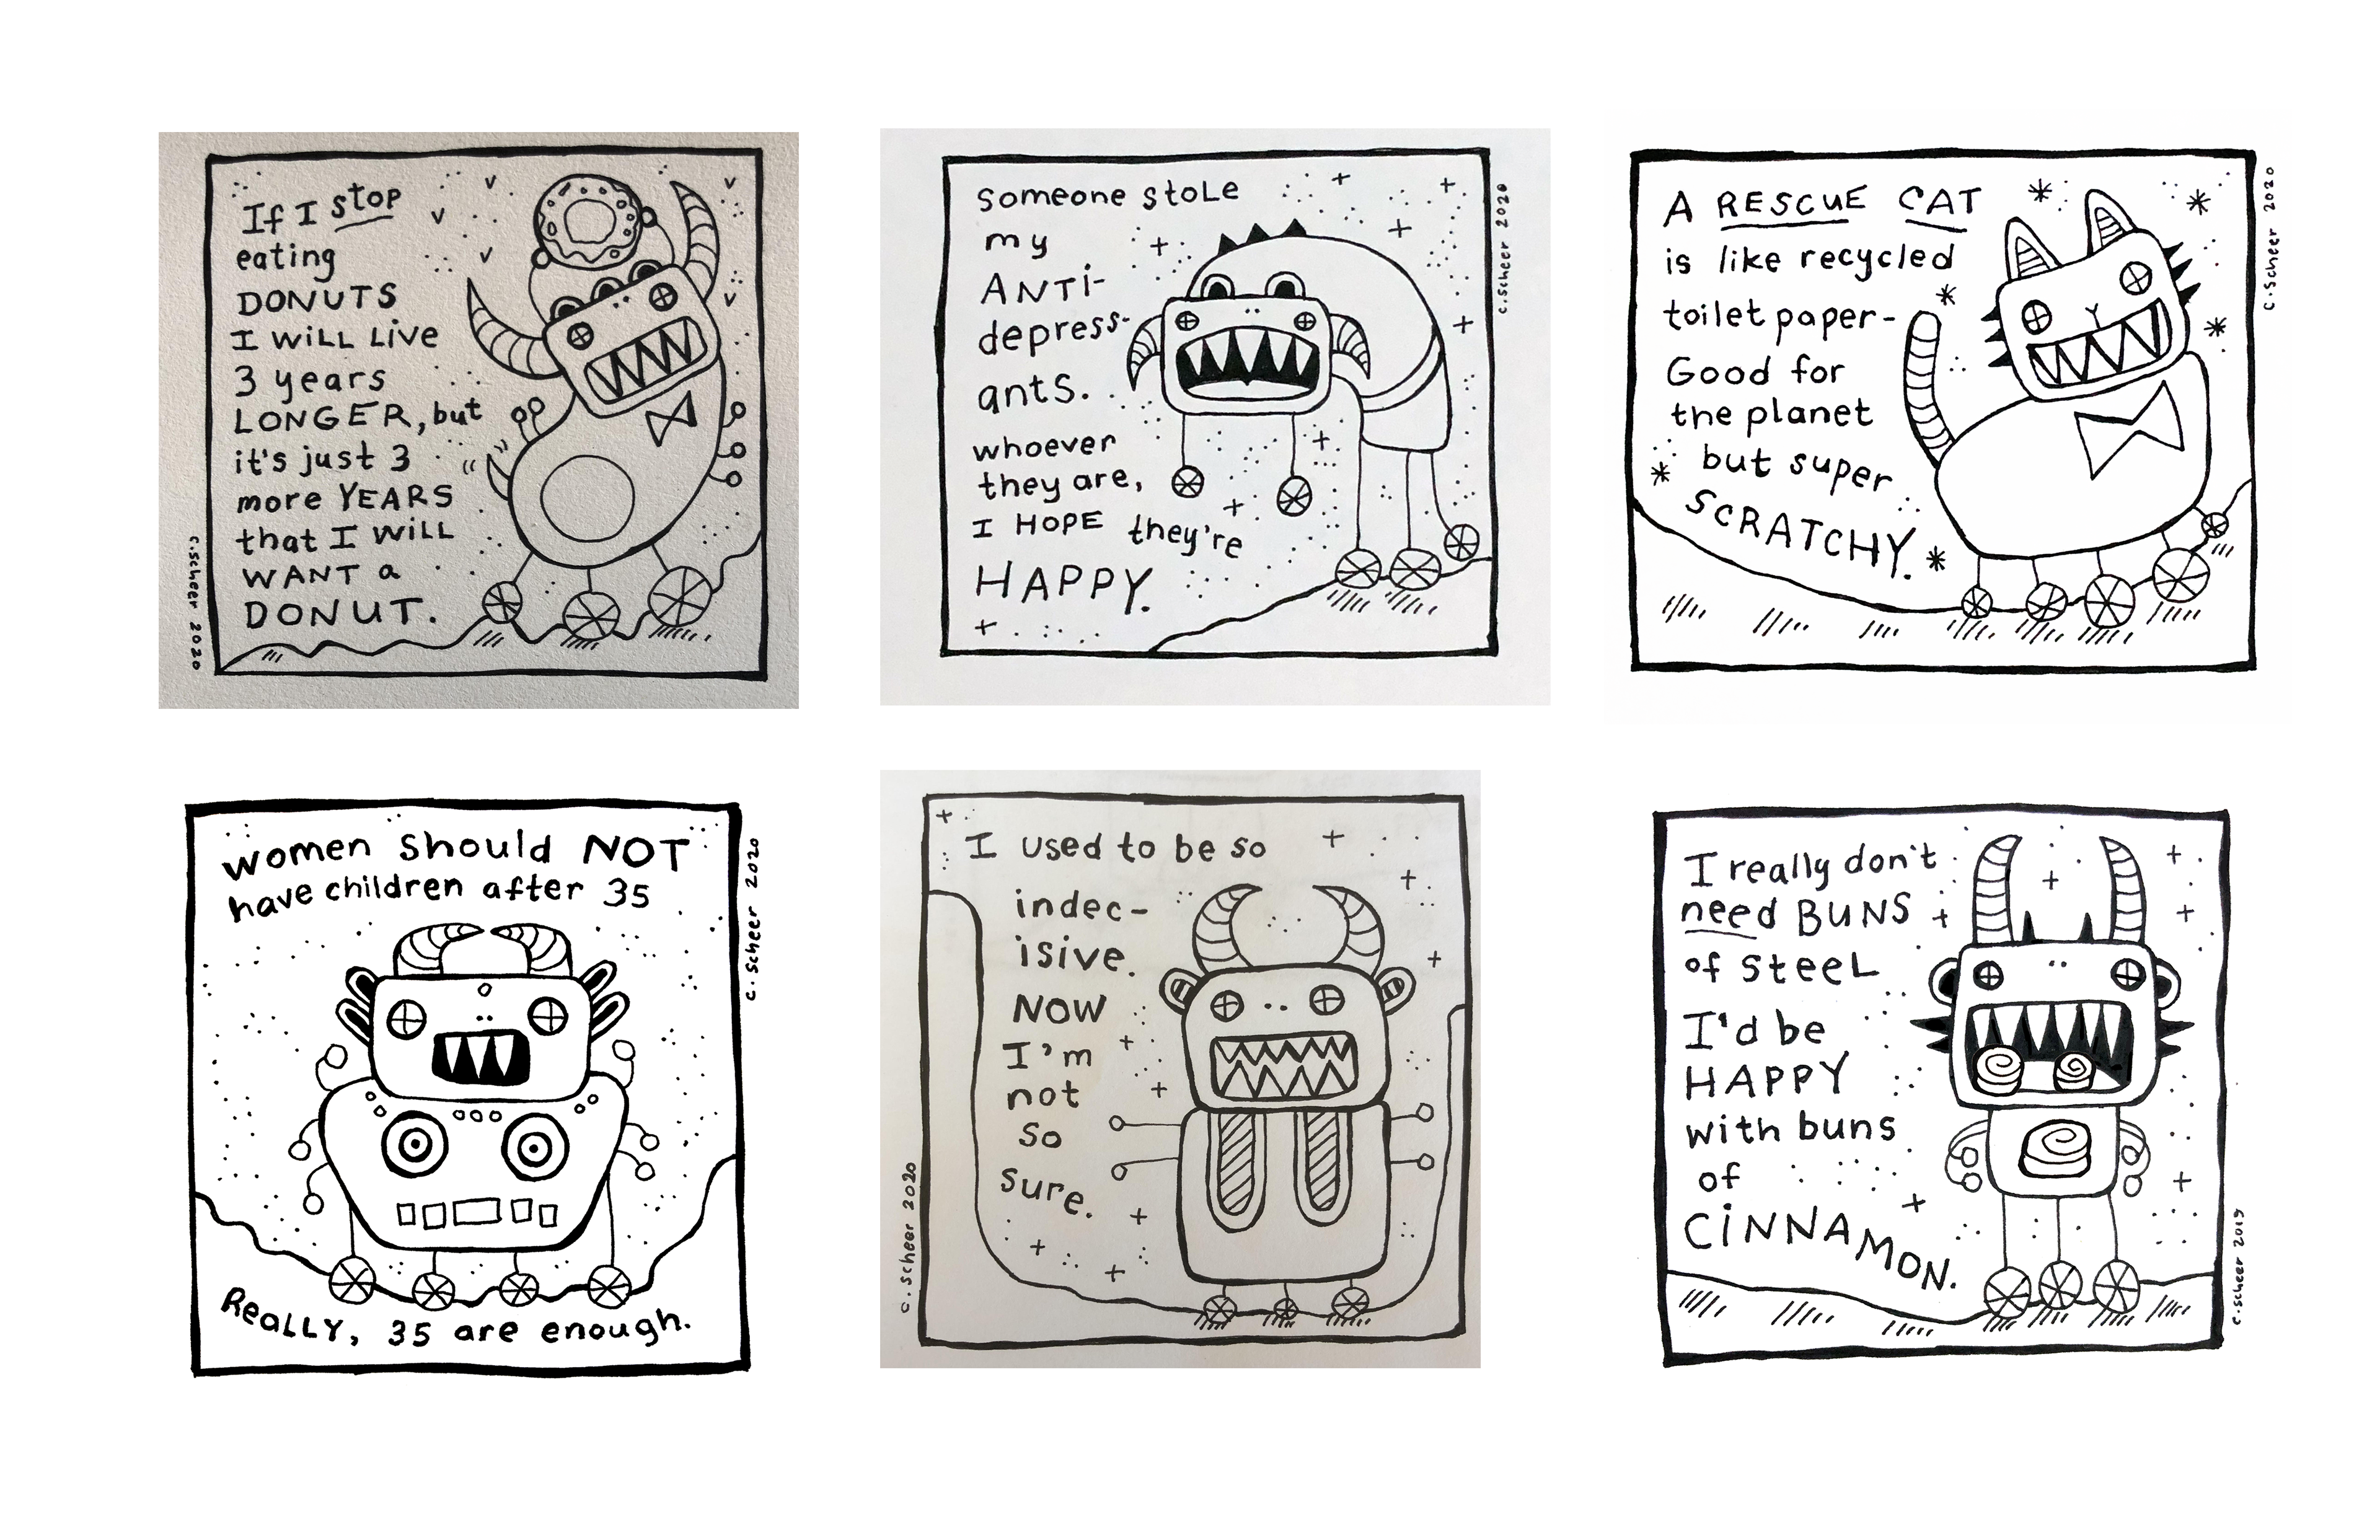 If I stop
eating
DONUTS
I WILL LIVE
3 years
LONGER, but
it's just 3
more YEARS
that I WILL
WANT a
DONUT.
c.scheer 2020
someone stole
my
ANTi-
depress-
ants.
whoever
they are,
I HOPE they're
HAPPY.
c.scheer 2020
A RESCUE CAT
is like recycled
toilet paper-
Good for
the planet
but super
SCRATCHY.
c.scheer 2020
women should NOT
have children after 35
ReaLLY, 35 are enough.
c.scheer 2020
I used to be so
indec-
isive.
NOW
I'm
not
so
sure.
c.scheer 2020
I really don't
need BUNS
of steeL
I'd be
HAPPY
with buns
of
CiNNAMON.
c.scheer 2019